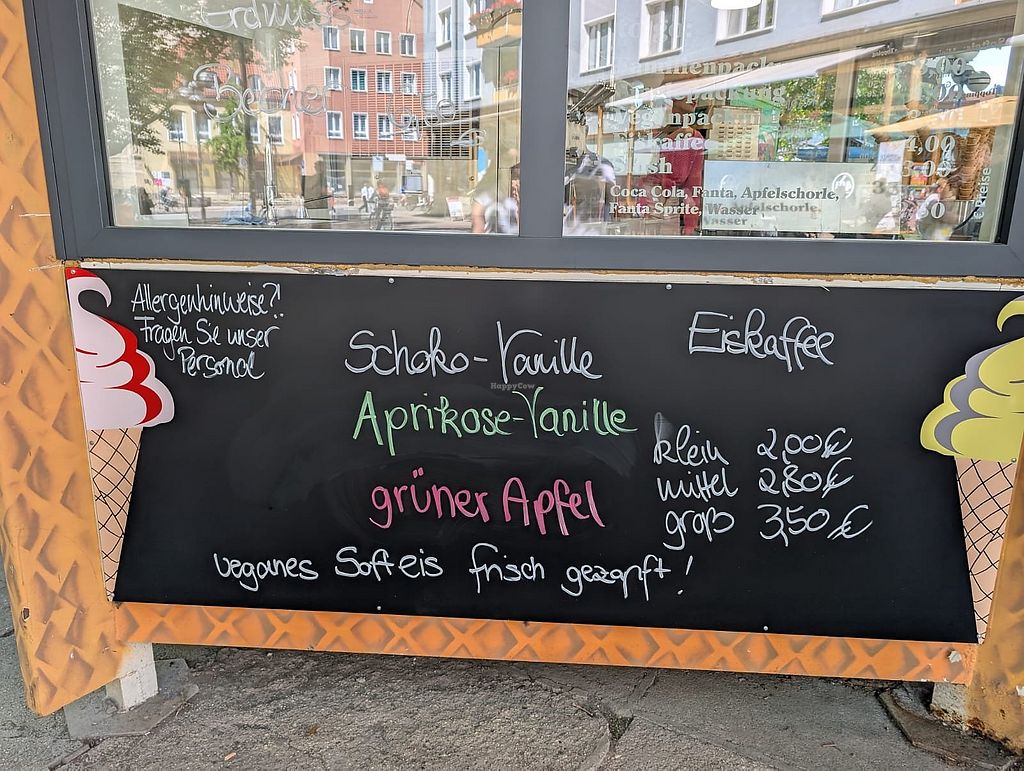 Familienpack
Eiskaffee
4,00
Coca Cola, Fanta, Apfelschorle,
Fanta Sprite, Wasser
Allergenhinweise?!
Fragen Sie unser
Personal
Schoko-Vanille
Aprikose-Vanille
grüner Apfel
veganes Softeis frisch gezapft!
Eiskaffee
klein 2,00€
mittel 2,80€
groß 3,50€
HappyCow